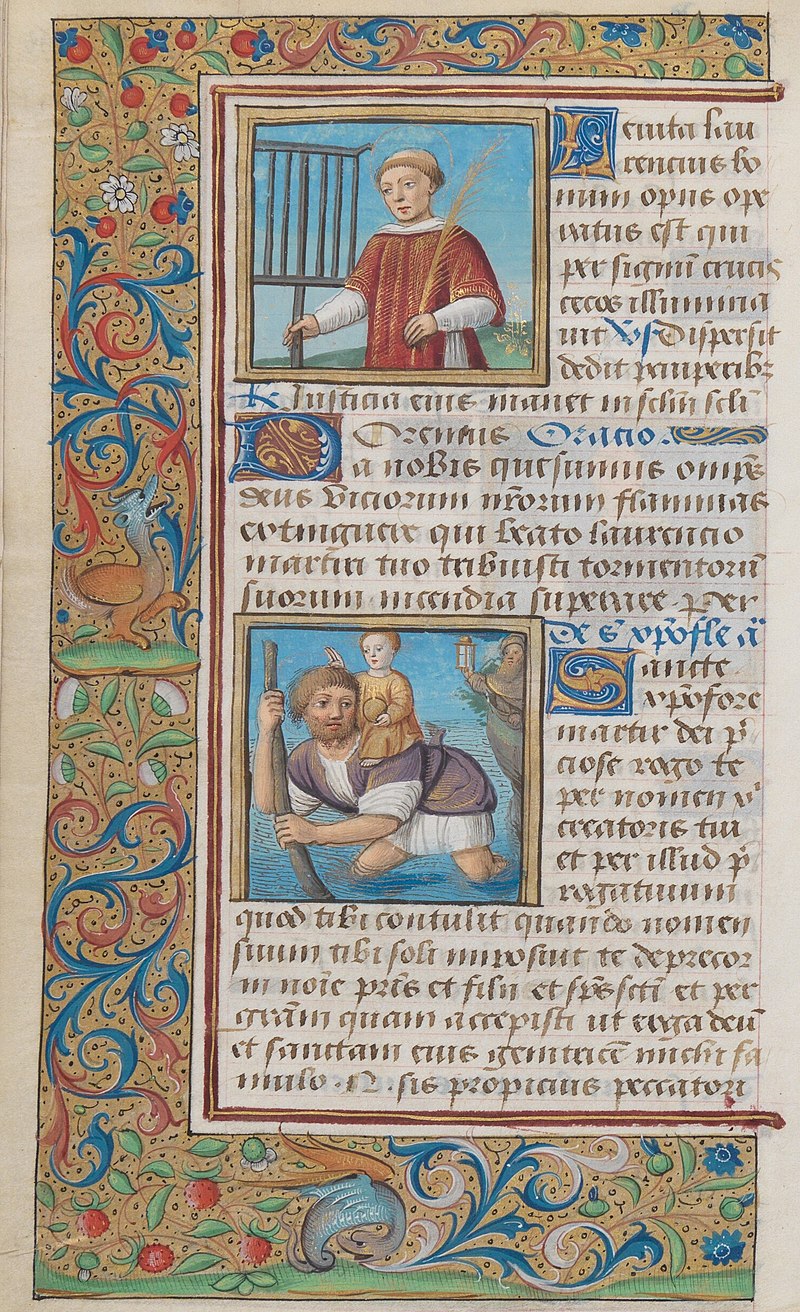 Leuita lau
rencius bo
num opus ope
ratus est qui
per signū crucis
cecos illumina
uit Vs Dispersit
dedit pauperibꝫ
R Iusticia eius manet in sclm scli
Oremus Oracio.
Da nobis quesumus omps
deus viciorum nrorum flammas
extinguere qui beato laurencio
martiri tuo tribuisti tormentorū
suorum incendia superare. Per
De S xpofle añ
Sancte
xpofore
martir dei p̄
ciose rogo te
per nomen x̄
creatoris tui
et per illud p̄
rogatiuum
quod tibi contulit quando nomen
suum tibi soli imposuit te deprecor
in noīe prīs et filii et spūs scti et per
grām quam accepisti ut erga deū
et sanctam eius genitricē michi fa
mulo .N. sis propicius peccatori